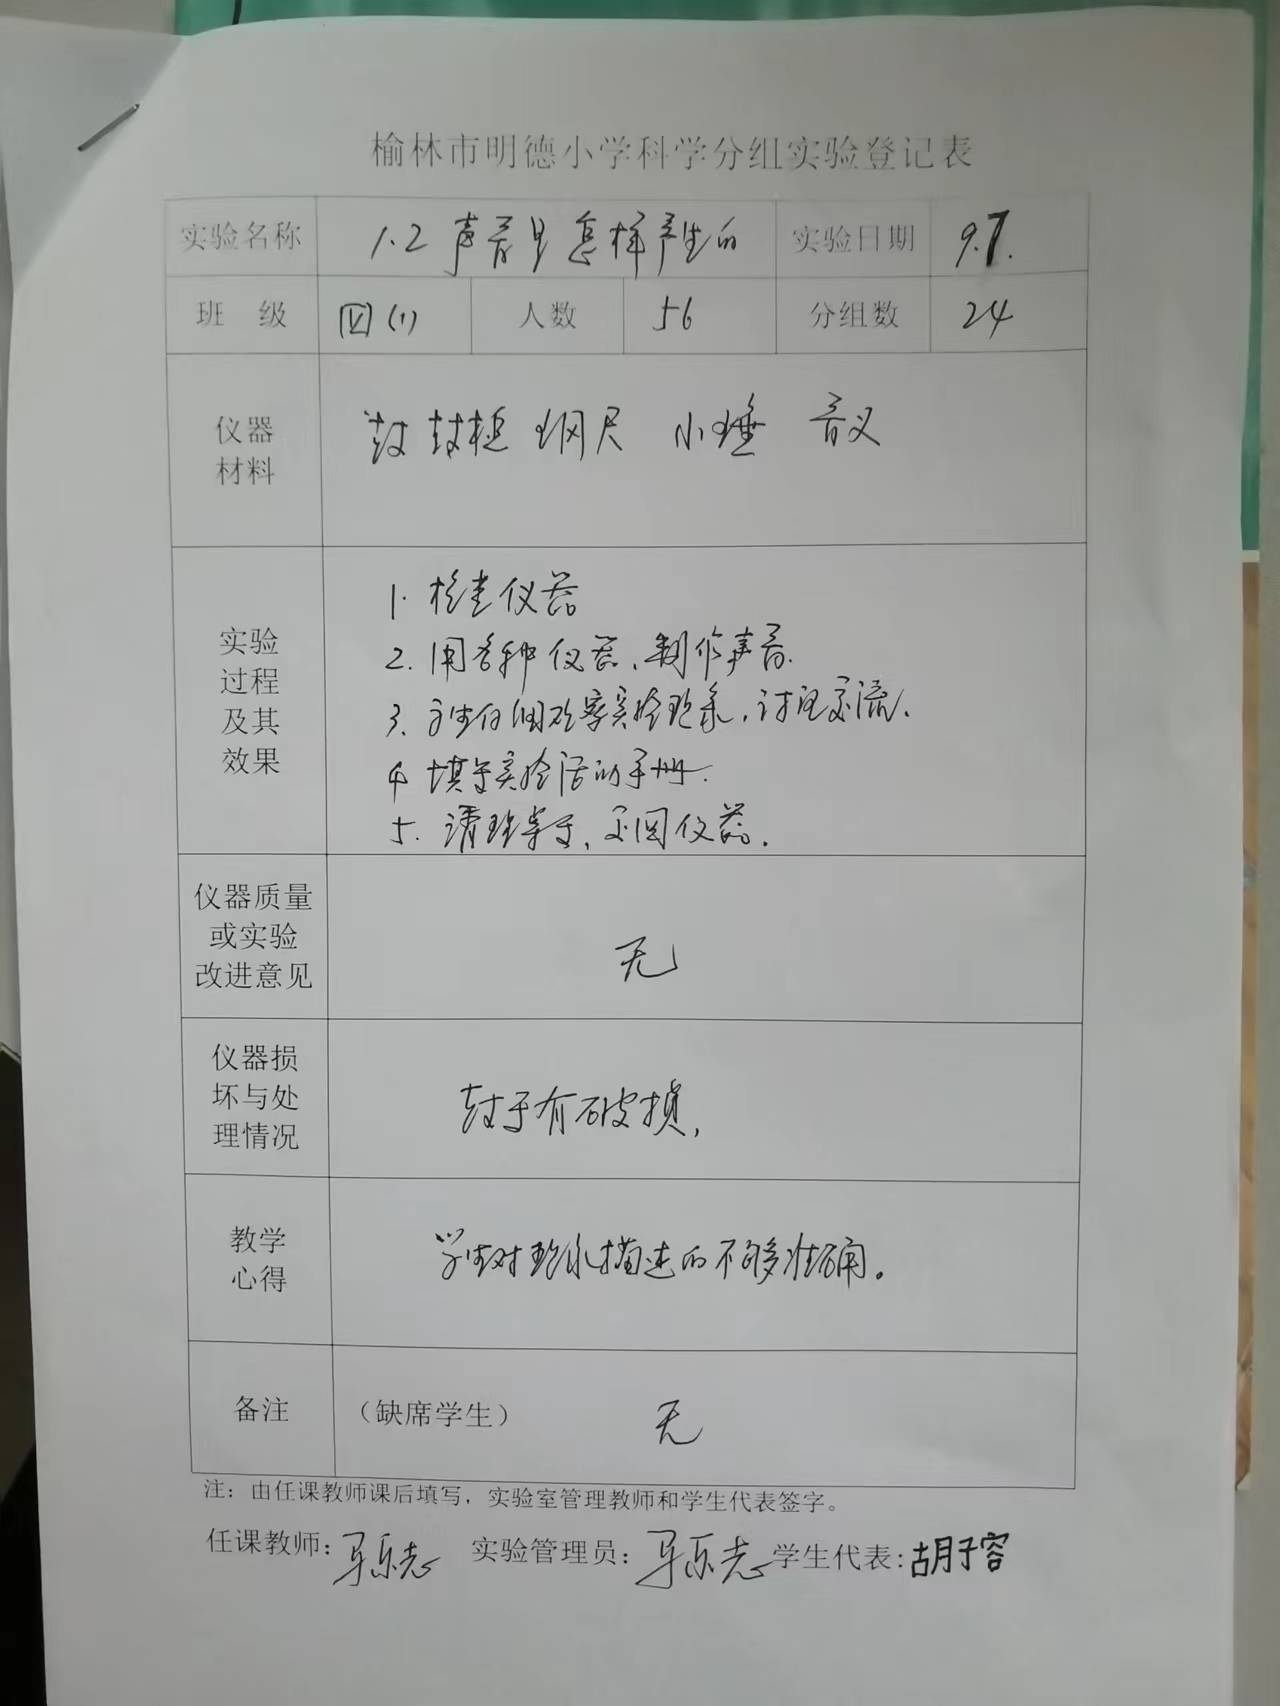 榆林市明德小学科学分组实验登记表
实验名称 1.2 声音是怎样产生的 实验日期 9.7.
班 级 四(1) 人数 56 分组数 24
仪器
材料
鼓 鼓槌 钢尺 小锤 音叉
实验
过程
及其
效果
1. 检查仪器
2. 用各种仪器、制作声音.
3. 学生仔细观察实验现象,讨论交流.
4 填写实验活动手册.
5. 清理桌子,交回仪器.
仪器质量
或实验
改进意见
无
仪器损
坏与处
理情况
鼓于有破损,
教学
心得
学生对现象描述的不够准确。
备注 (缺席学生) 无
注:由任课教师课后填写,实验室管理教师和学生代表签字。
任课教师: 实验管理员: 学生代表:胡子容